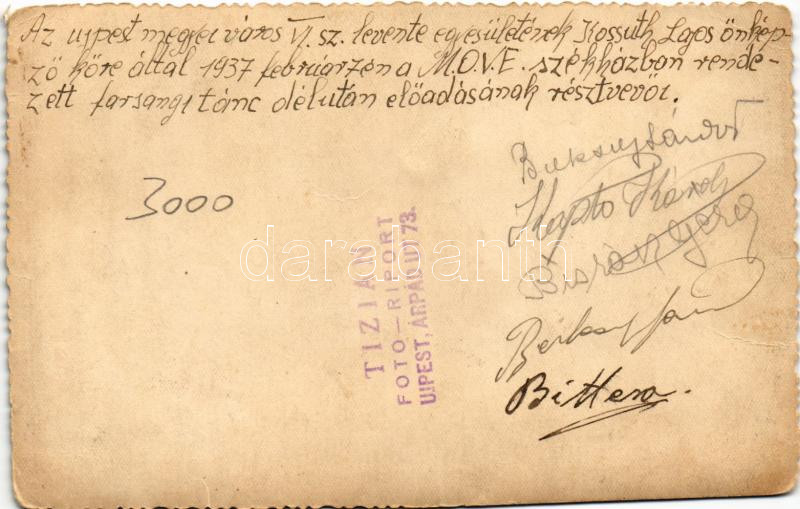 Az ujpest megyei város VI. sz. levente egyesületének Kossuth Lajos önkép-
ző köre által 1937 február 7-én a M.O.V.E. székházban rende-
zett farsangi tánc délután előadásának résztvevői.
3000
TIZIAN
FOTO-RIPORT
UJPEST, ÁRPÁD UT 73.
darabanth
Károly
Bittera